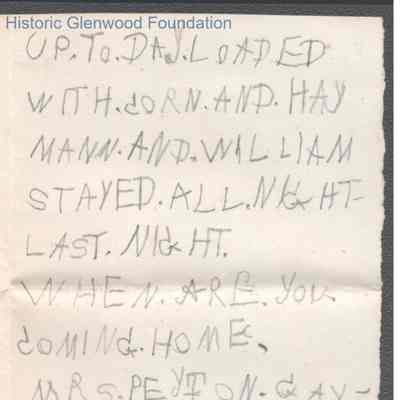 Historic Glenwood Foundation
UP.TO.DAY.LOADED
WITH.CORN.AND.HAY
MANN.AND.WILLIAM
STAYED.ALL.NIGHT-
LAST.NIGHT.
WHEN.ARE.YOU.
COMING.HOME.
MRS.PEYTON.GAV-